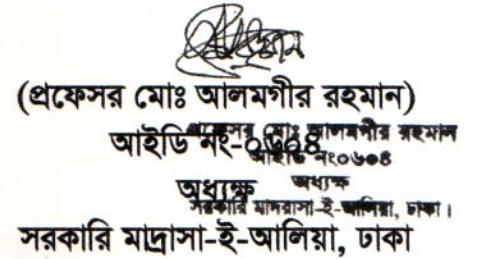 (প্রফেসর মোঃ আলমগীর রহমান)
আইডি নং-০৬০৪
প্রফেসর মোঃ আলমগীর রহমান
আইডি নং০৬০৪
অধ্যক্ষ
অধ্যক্ষ
সরকারি মাদরাসা-ই-আলিয়া, ঢাকা।
সরকারি মাদ্রাসা-ই-আলিয়া, ঢাকা